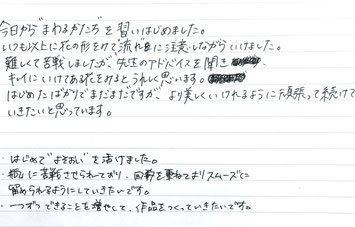 今日から"まわるかたち"を習いはじめました。
いつも以上に花の形をみて流れに注意しながらいけました。
難しくて苦戦しましたが、先生のアドバイスを聞き
キレイにいけてある花をみるとうれしく思います。
はじめたばかりでまだまだですが、より美しくいけれるように頑張って続けて
いきたいと思っています。
・はじめて"よそおい"を活けました。
・に苦戦させられており、回数を重ねてよりスムーズに
留められるようにしていきたいです。
・一つずつできることを増やして、作品をつくっていきたいです。